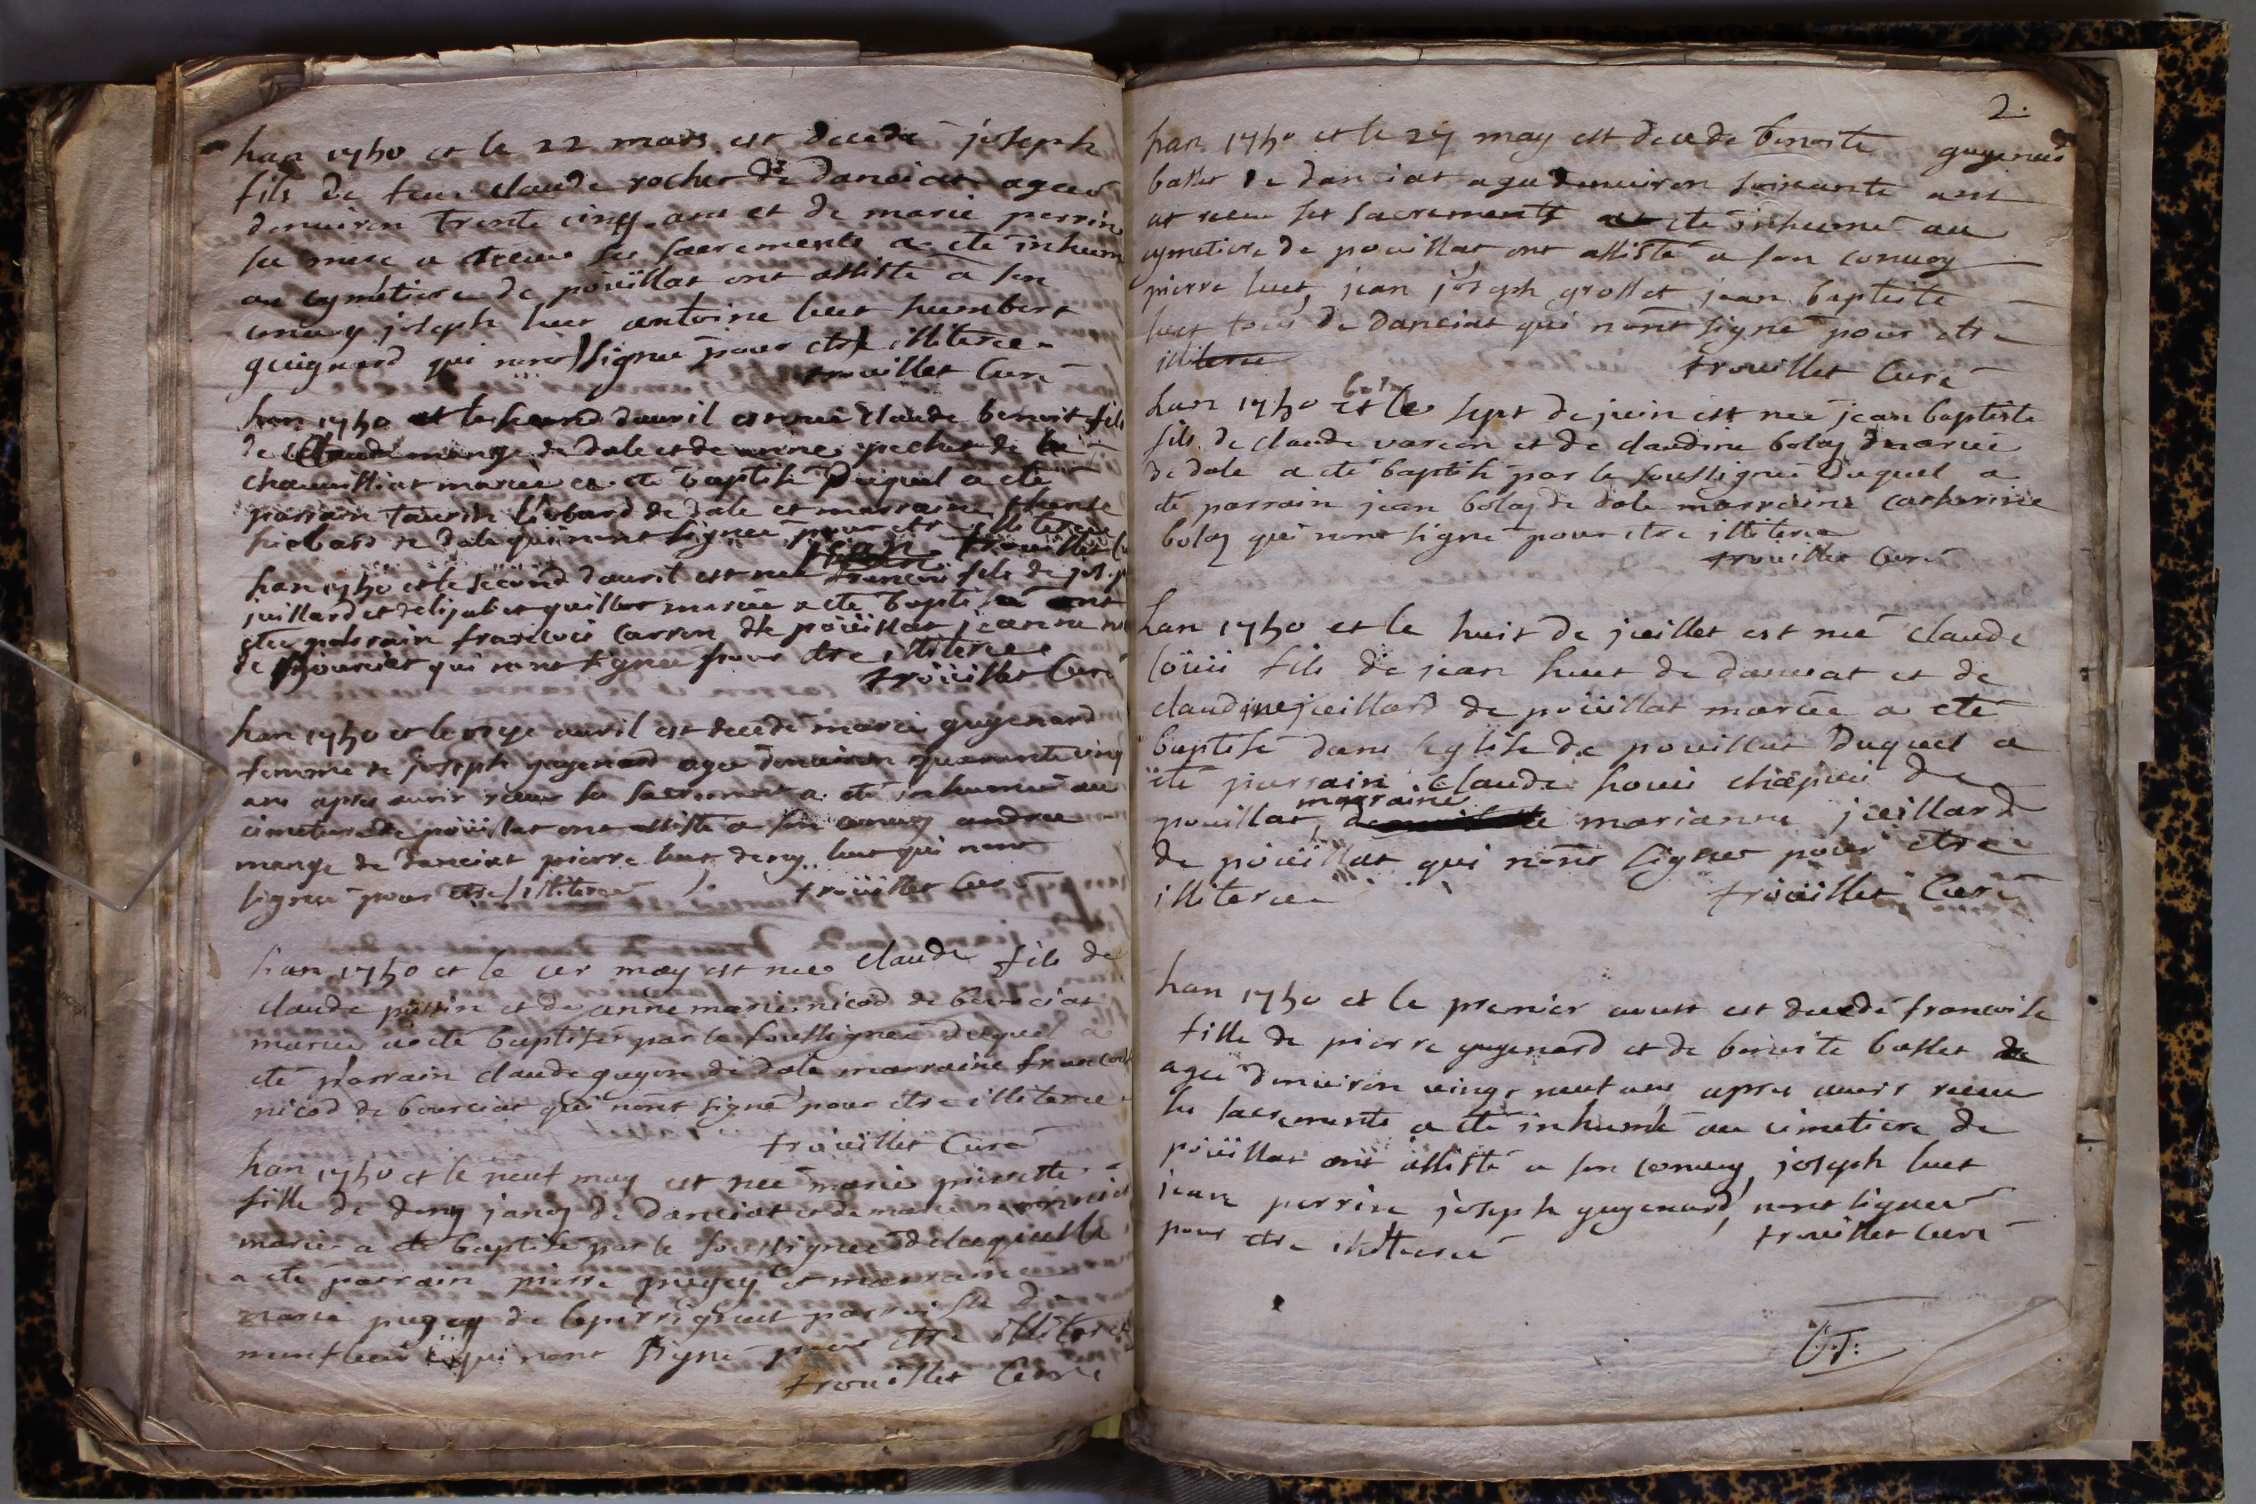 lan 1750 et le 22 mars est decede joseph
fils de feu claude rocher de danciat agee
denuiron trente cinq ans et de marie perrin
sa mere a receu ses sacrements a ete inhum
au cymetiere de poüillat ont assiste a son
conuoy joseph huet antoine huet humbert
guignard qui nont signee pour etre illiteree
trouillet Curé
lan 1750 et le second dauril est née claude benoit fils
de Claude mange de dole et de anne pechet de
mariee a eté baptisé duquel a ete
parrain taurin de dole et marraine
de dole qui nont signee pour etre illiteree
jean trouillet Cu
lan 1750 et le second dauril est nee francois fils de jos.
juillard et delizabet guillot mariee a ete baptisé ont
etee parrain francois carron de poüillat jeanne
de bourciat qui nont signee pour etre illiteree
troüillet Curé
lan 1750 et le onze auril est decedé marie guyenard
femme de joseph guyenard agee denuiron quarante cinq
ans apres auoir receu ses sacrement a eté inhumé au
cimetiere de poüillat ont assisté a son conuoy andree
mange de danciat pierre huet deny huet qui nont
signee pour etre illiteree troüillet Curé
lan 1750 et le 1er may est nee claude fils de
claude putin et de anne marie nicod de bourciat
mariee a eté baptisé par le soussignee duquel a
eté parrain claude guyon de dole marraine francoise
nicod de bourciat qui nont signé pour etre illiteree
troüillet Curé
lan 1750 et le neuf may est née marie pierrette
fille de deny janoy de danciat et de marie
mariee a eté baptisé par le soussignee delaquelle
a eté parrain pierre pugey et marraine
marie pugey de parroisse de
montfleur qui nont signé pour etre illiteree
trouillet Curé
2.
lan 1750 et le 27 may est decede benoite guyenard
basset de danciat agee denuiron soixante ans
at receu ses sacrements a eté inhumé au
cymetiere de pouillat ont assisté a son conuoy
pierre huet, jean joseph grosset jean baptiste
huet tous de danciat qui nont signé pour etre
illiteree trouillet Curé
lan 1750 et le sept de juin est nee jean baptiste
fils de claude varion et de claudine bolay mariee
de dole a eté baptisé par le soussigné duquel a
eté parrain jean bolay de dole marraine catherine
bolay qui nont signé pour etre illiteree
trouillet Curé
lan 1750 et le huit de juillet est neé claude
loüii fils de jean huet de danciat et de
claudine jeillard de poüillat mariee a eté
baptisé dans leglise de pouillat duquel a
eté parrain claude loui chapuis de
pouillat, marraine marianne jeillard
de poüillat qui nont signer pour etre
illiteree troüillet Curé
lan 1750 et le premier aoust est decedé francoise
fille de pierre guyenard et de benoite basset de
agee denuiron vingt neuf ans apres auoir receu
les sacrements a eté inhumé au cimetiere de
poüillat ont assisté a son conuoy, joseph huet
jean perrin joseph guyenard, nont signee
pour etre illiteree trouillet curé
C.T: